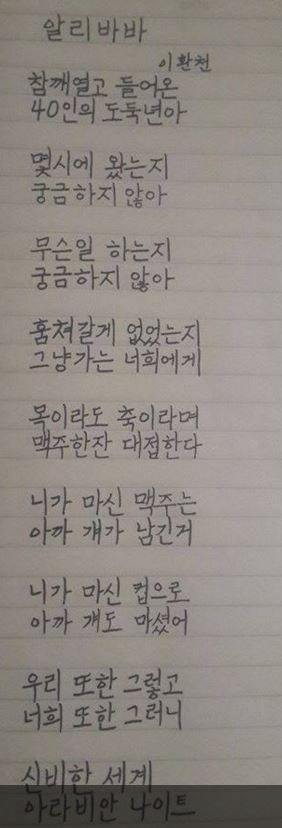 알리바바
이환천
참깨열고 들어온
40인의 도둑년아
몇시에 왔는지
궁금하지 않아
무슨일 하는지
궁금하지 않아
훔쳐갈게 없었는지
그냥가는 너희에게
목이라도 축이라며
맥주한잔 대접한다
니가 마신 맥주는
아까 걔가 남긴거
니가 마신 컵으로
아까 걔도 마셨어
우리 또한 그렇고
너희 또한 그러니
신비한 세계
아라비안 나이트